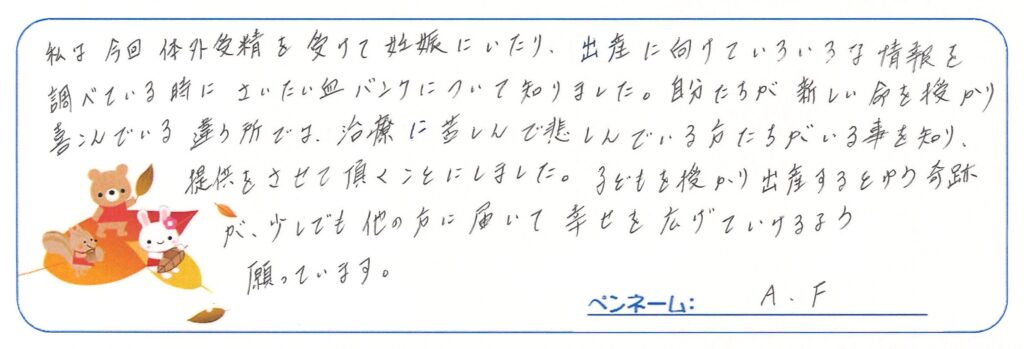 私は今回体外受精を受けて妊娠にいたり、出産に向けていろいろな情報を
調べている時にさいたい血バンクについて知りました。自分たちが新しい命を授かり
喜こんでいる違う所では、治療に苦しんで悲しんでいる方たちがいる事を知り、
提供をさせて頂くことにしました。子どもを授かり出産するとゆう奇跡
が、少しでも他の方に届いて幸せを広げていけるよう
願っています。
ペンネーム: A.F